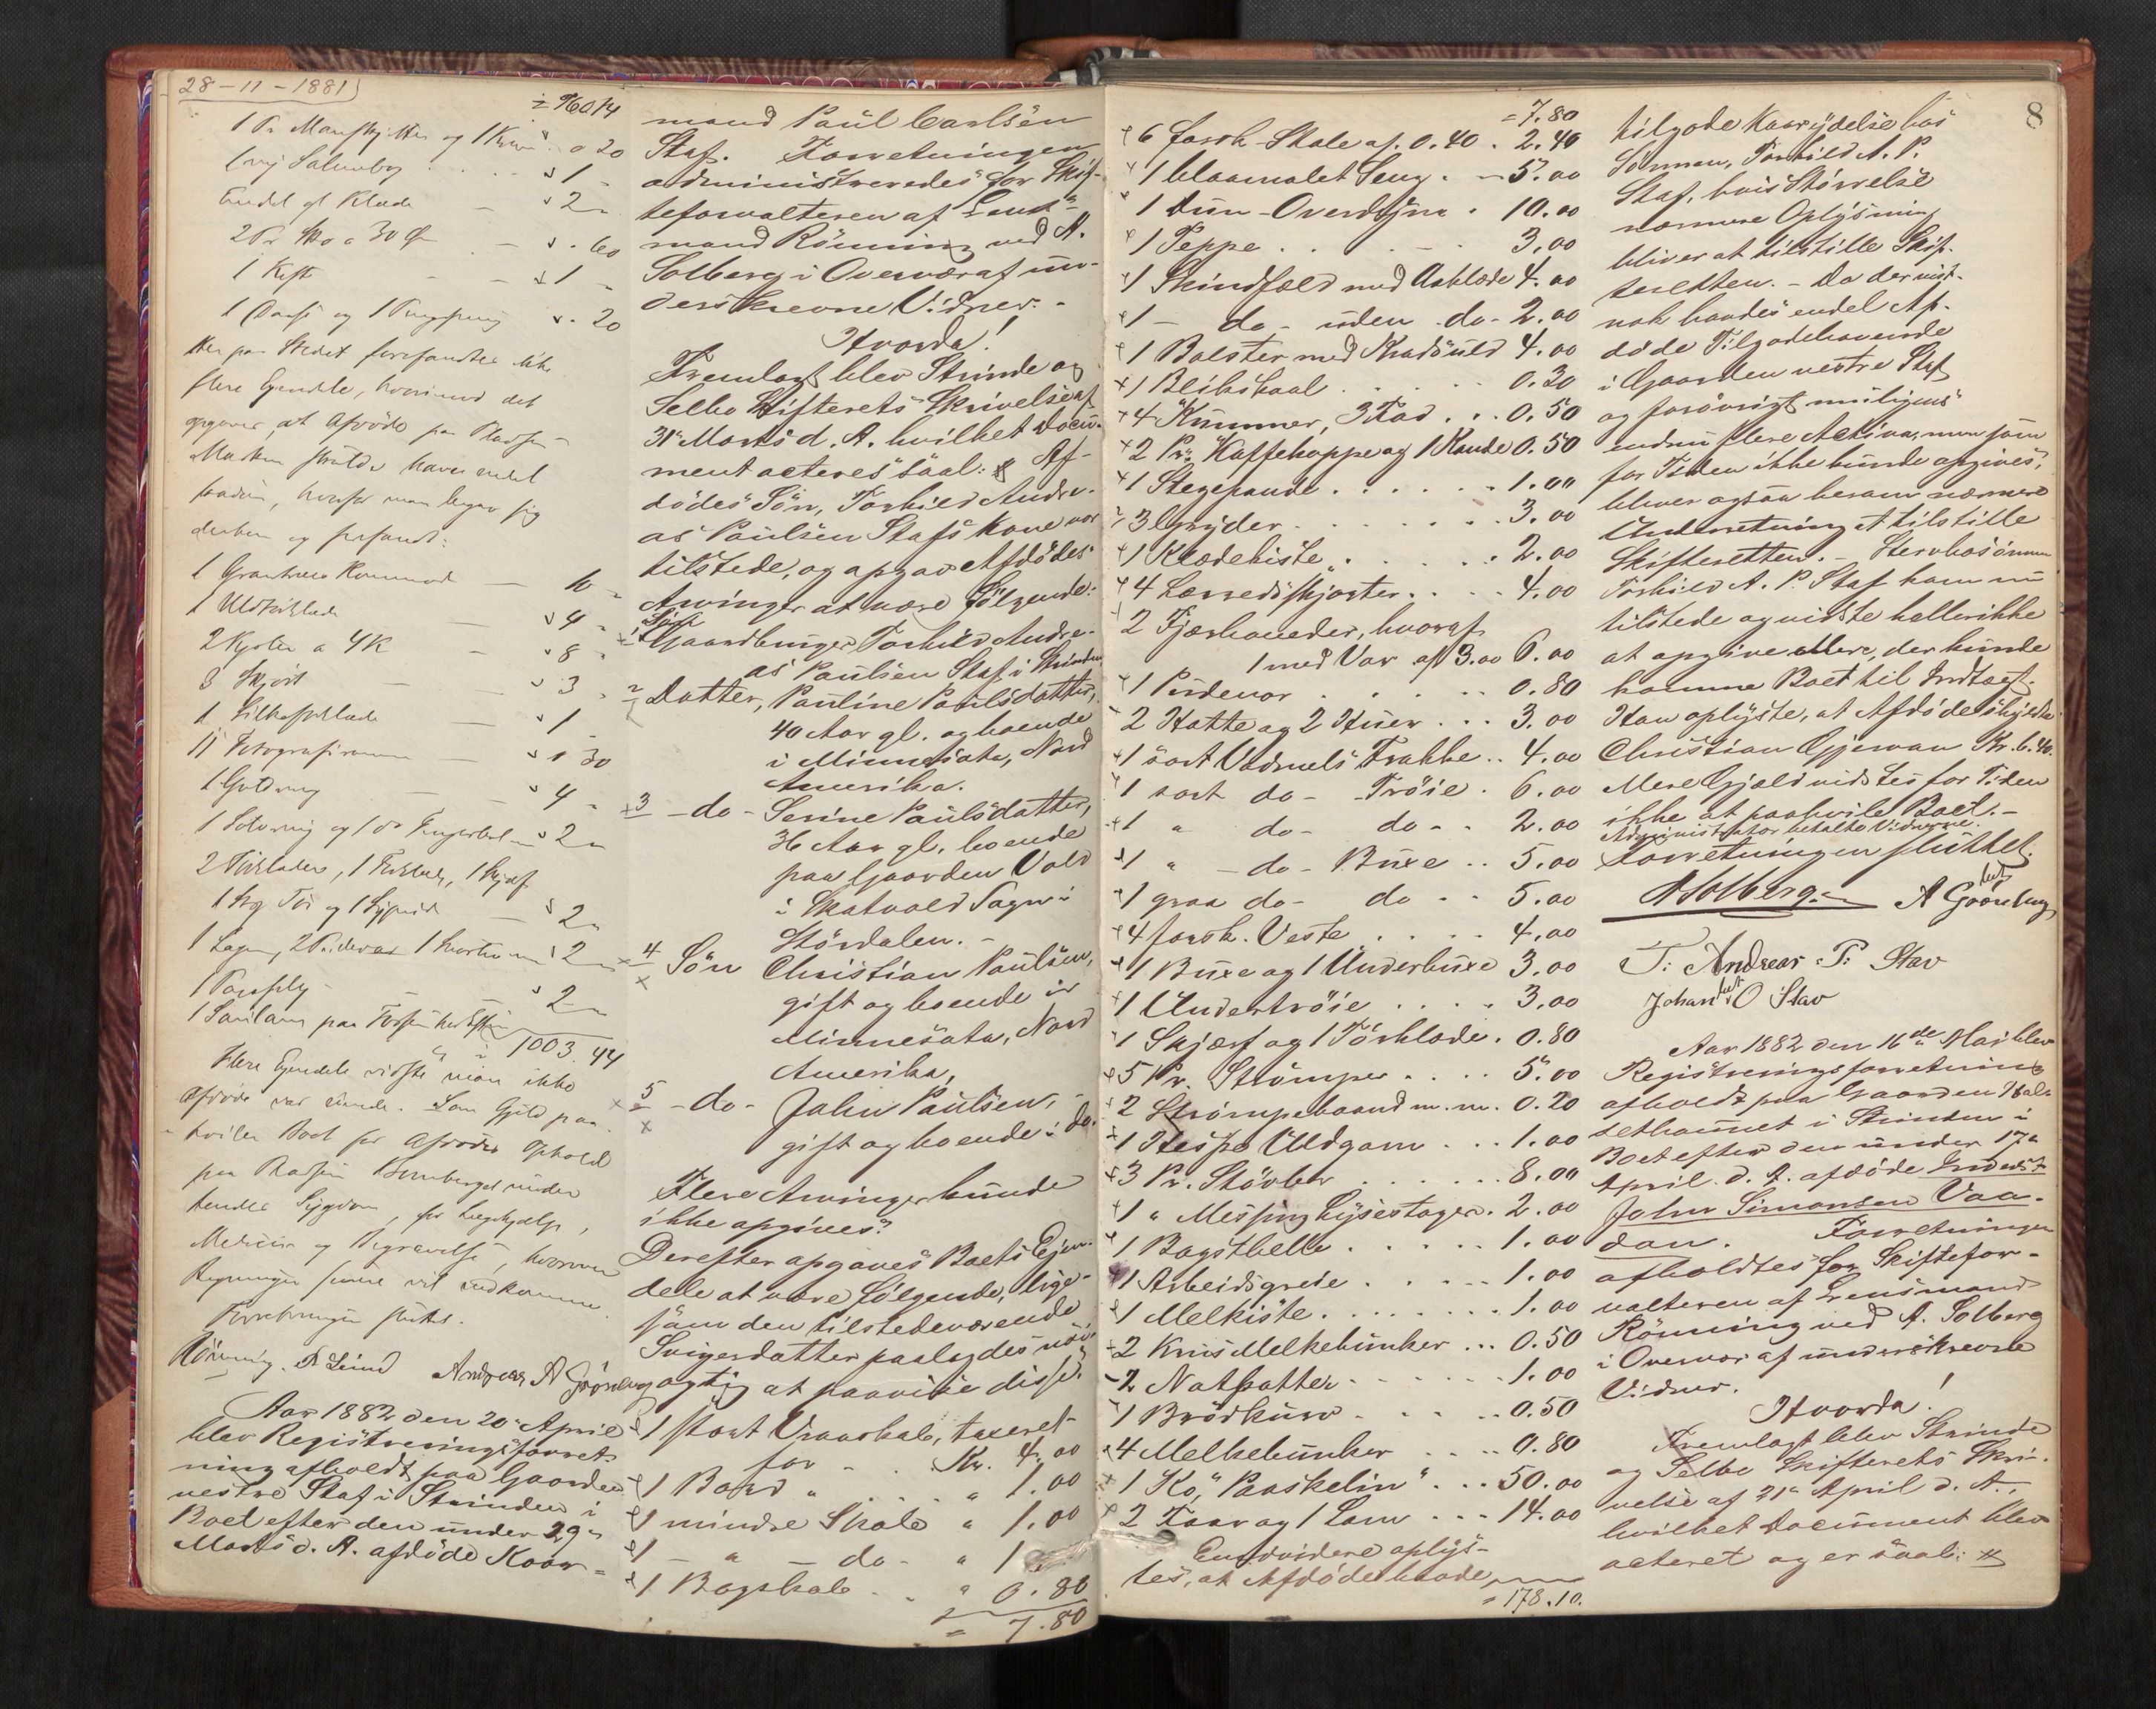 28-11-1881
1 Pr Manskjetter og 1 Krave " 20
1 ny Salmebog " 1 -
Endel gl Klæder - " 2 "
2 Pr Sko a 30 Øre - " . 60
1 Kiste - " 1 -
1 Daase og 1 Pengepung " . 20
Her paa Stedet forefandtes ikke
flere Eiendele, hvorimod det
opgaves, at Afdøde paa Pladsen
skulde have endel
hvorfor man begav sig
derhen og forefandt:
1 Kommode - 10 -
1 Uldtørklæde - " 4 -
2 Kjoler a 4 K - " 8 -
3 Skjørt - " 3 -
1 Silketørklæde - " 1 -
11 Fotografirammer - " 1 30
1 Guldring - " 4 -
1 Sølvring og 1 do Fingerbøl " 2 "
2 Tørklæder, 1 Forklæde, 1 Skjærf
1 Tøi og " 2 "
1 Lagen, 2 Pudevar 1 " 2 "
1 Paraply - " 2 "
1003.44
Flere Eiendele vidste man ikke
Afdøde var eiende. Som Gjæld paa-
hviler Boet for Afdødes Ophold
paa Pladsen under
hendes Sygdom, for Lægehjælp,
Medicin og Begravelse, hvorom
Regninger senere vil indkomme.
Forretningen sluttet.
Rönning. A Grönberg
Aar 1882 den 20de April
blev Registreringsforret-
ning afholdt paa Gaarden
vestre Staf i Strinden i
Boet efter den under 29de
Marts d. A. afdöde Kaar-
mand Paul Carlsen
Staf. Forretningen
administreredes for Skif-
teforvalteren af Lens-
mand Rönning ved A.
Solberg i Overvær af un-
derskrevne Vidner. -
Hvorda!
Fremlagt blev Strinde og
Selbo Skifterets Skrivelse af
31te Marts d. A. hvilket Docu-
ment acteres saal: # Af-
dödes Sön, Torkild Andre-
as Paulsen Stafs Kone var
tilstede, og opgav Afdödes
Arvinger at være Fölgende:
1 Sön Gaardbruger Torkild Andre-
as Paulsen Staf i Strinden
2 Datter, Pauline Paulsdatter,
40 Aar gl. og boende
i Minnesota, Nord
Amerika.
3 - do - Serine Paulsdatter,
36 Aar gl. boende
paa Gaarden Vold
i Skatvold Sogn i
Stördalen. -
4 Sön Christian Paulsen,
gift og boende i
Minnesota, Nord
Amerika,
5 - do - John Paulsen,
gift og boende i do.
Flere Arvinger kunde
ikke opgives.
Derefter opgaves Boets Eien-
dele at være fölgende, lige-
som den tilstedeværende
Svigerdatter paalagdes nöi-
agtig at paavise disse.
1 stort Vraaskab, taxeret
for - . . Kr. 4.00
1 Bord " . . . . " 1.00
1 mindre Skab " 1.00
1 - " - do - " 1
1 Bogskab - . " 0.80
= 7.80
8
= 7.80
6 forsk. Stole af. 0.40 . 2.40
1 blaamalet Seng . - 5.00
1 Dun-Overdyne . 10.00
1 Teppe . . . - . 3.00
1 Skindfæld med Aaklæde 4.00
1 - do - uden - do - 2.00
1 Bolster med Krøduld 4.00
1 Blikskaal . . . . . 0.30
4 Kummer, 3 Fad . . . 0.50
2 Pr. Kaffekoppe og 1 Kande 0.50
1 Stegepande . . . . . . 1.00
3 Gryder . . . . . . . 3.00
1 Klædekiste . . . . . 2.00
4 Lærredsskjorter . . . . 4.00
2 Fjærhoveder, hvoraf
1 med Var af 3.00 6.00
1 Pudevar . . . . . . 0.80
2 Hatte og 2 Huer . . . 3.00
1 sort Vadmels Frakke . . 4.00
1 sort do - Tröie . 6.00
1 " do - do - . 2.00
1 " - do - Buxe . . 5.00
1 graa do - do - . 5.00
4 forsk. Veste . . . . 4.00
1 Buxe og 1 Underbuxe 3.00
1 Undertröie . . . . 3.00
1 Skjærf og 1 Törklæde . 0.80
5 Pr. Strömper . . . . 5.00
2 Strömpebaand m. m. 0.20
1 Hespe Uldgarn . . . 1.00
3 Pr. Stövler . . . . . 8.00
1 " Messing Lysestager . 2.00
1 Bagsthelle . . . . . 1.00
1 Arbeidsgreie . . . . 1.00
1 Melkiste . . . . . . 1.00
2 Krus Melkebunker . . . 0.50
2 Natpotter . . . . . 1.00
1 Brödkurv . . . . . 0.50
4 Melkebunker . . . . 0.80
1 Ko, "Paaskelin" . . . 50.00
2 Faar og 1 Lam . . . 14.00
Endvidere oplys-
tes, at Afdöde havde
= 178.10.
tilgode Kaarydelse hos
Sönnen, Torkild A. P.
Staf, hvis Störrelse
nærmere Oplysning
bliver at tilstille Skif-
teretten. - Da der vist-
nok havdes endel Af-
döde Tilgodehavende
i Gaarden vestre Staf
og forövrigt muligens
endnu flere Activa, men som
for Tiden ikke kunde opgives,
bliver ogsaa herom nærmere
Underretning at tilstille
Skifteretten. - Stervbosönnen
Torkild A. P. Staf kom nu
tilstede og vidste heller ikke
at opgive mere, der kunde
komme Boet til Indtægt.
Han oplyste, at Afdöde skyldte
Christian Gjervan Kr. 6.40.
Mere Gjæld vidstes for Tiden
ikke at paahvile Boet. -
Administrator betalte Vidnerne.
Forretningen sluttet.
A Solberg. A Grönberg
T. Andreas P. Stav
Johan O Stav
Aar 1882 den 16de Mai blev
Registreringsforretning
afholdt paa Gaarden Hal-
sethaunet i Strinden i
Boet efter den under 17de
April d. A. afdöde Inderst
John Simonsen Vaa-
dan. Forretningen
afholdtes for Skiftefor-
valteren af Lensmand
Rönning ved A. Solberg
i Overvær af underskrevne
Vidner.
Hvorda!
Fremlagt blev Strinde
og Selbo Skifterets Skri-
velse af 21de April d. A.,
hvilket Document blev
acteret og er saal: #